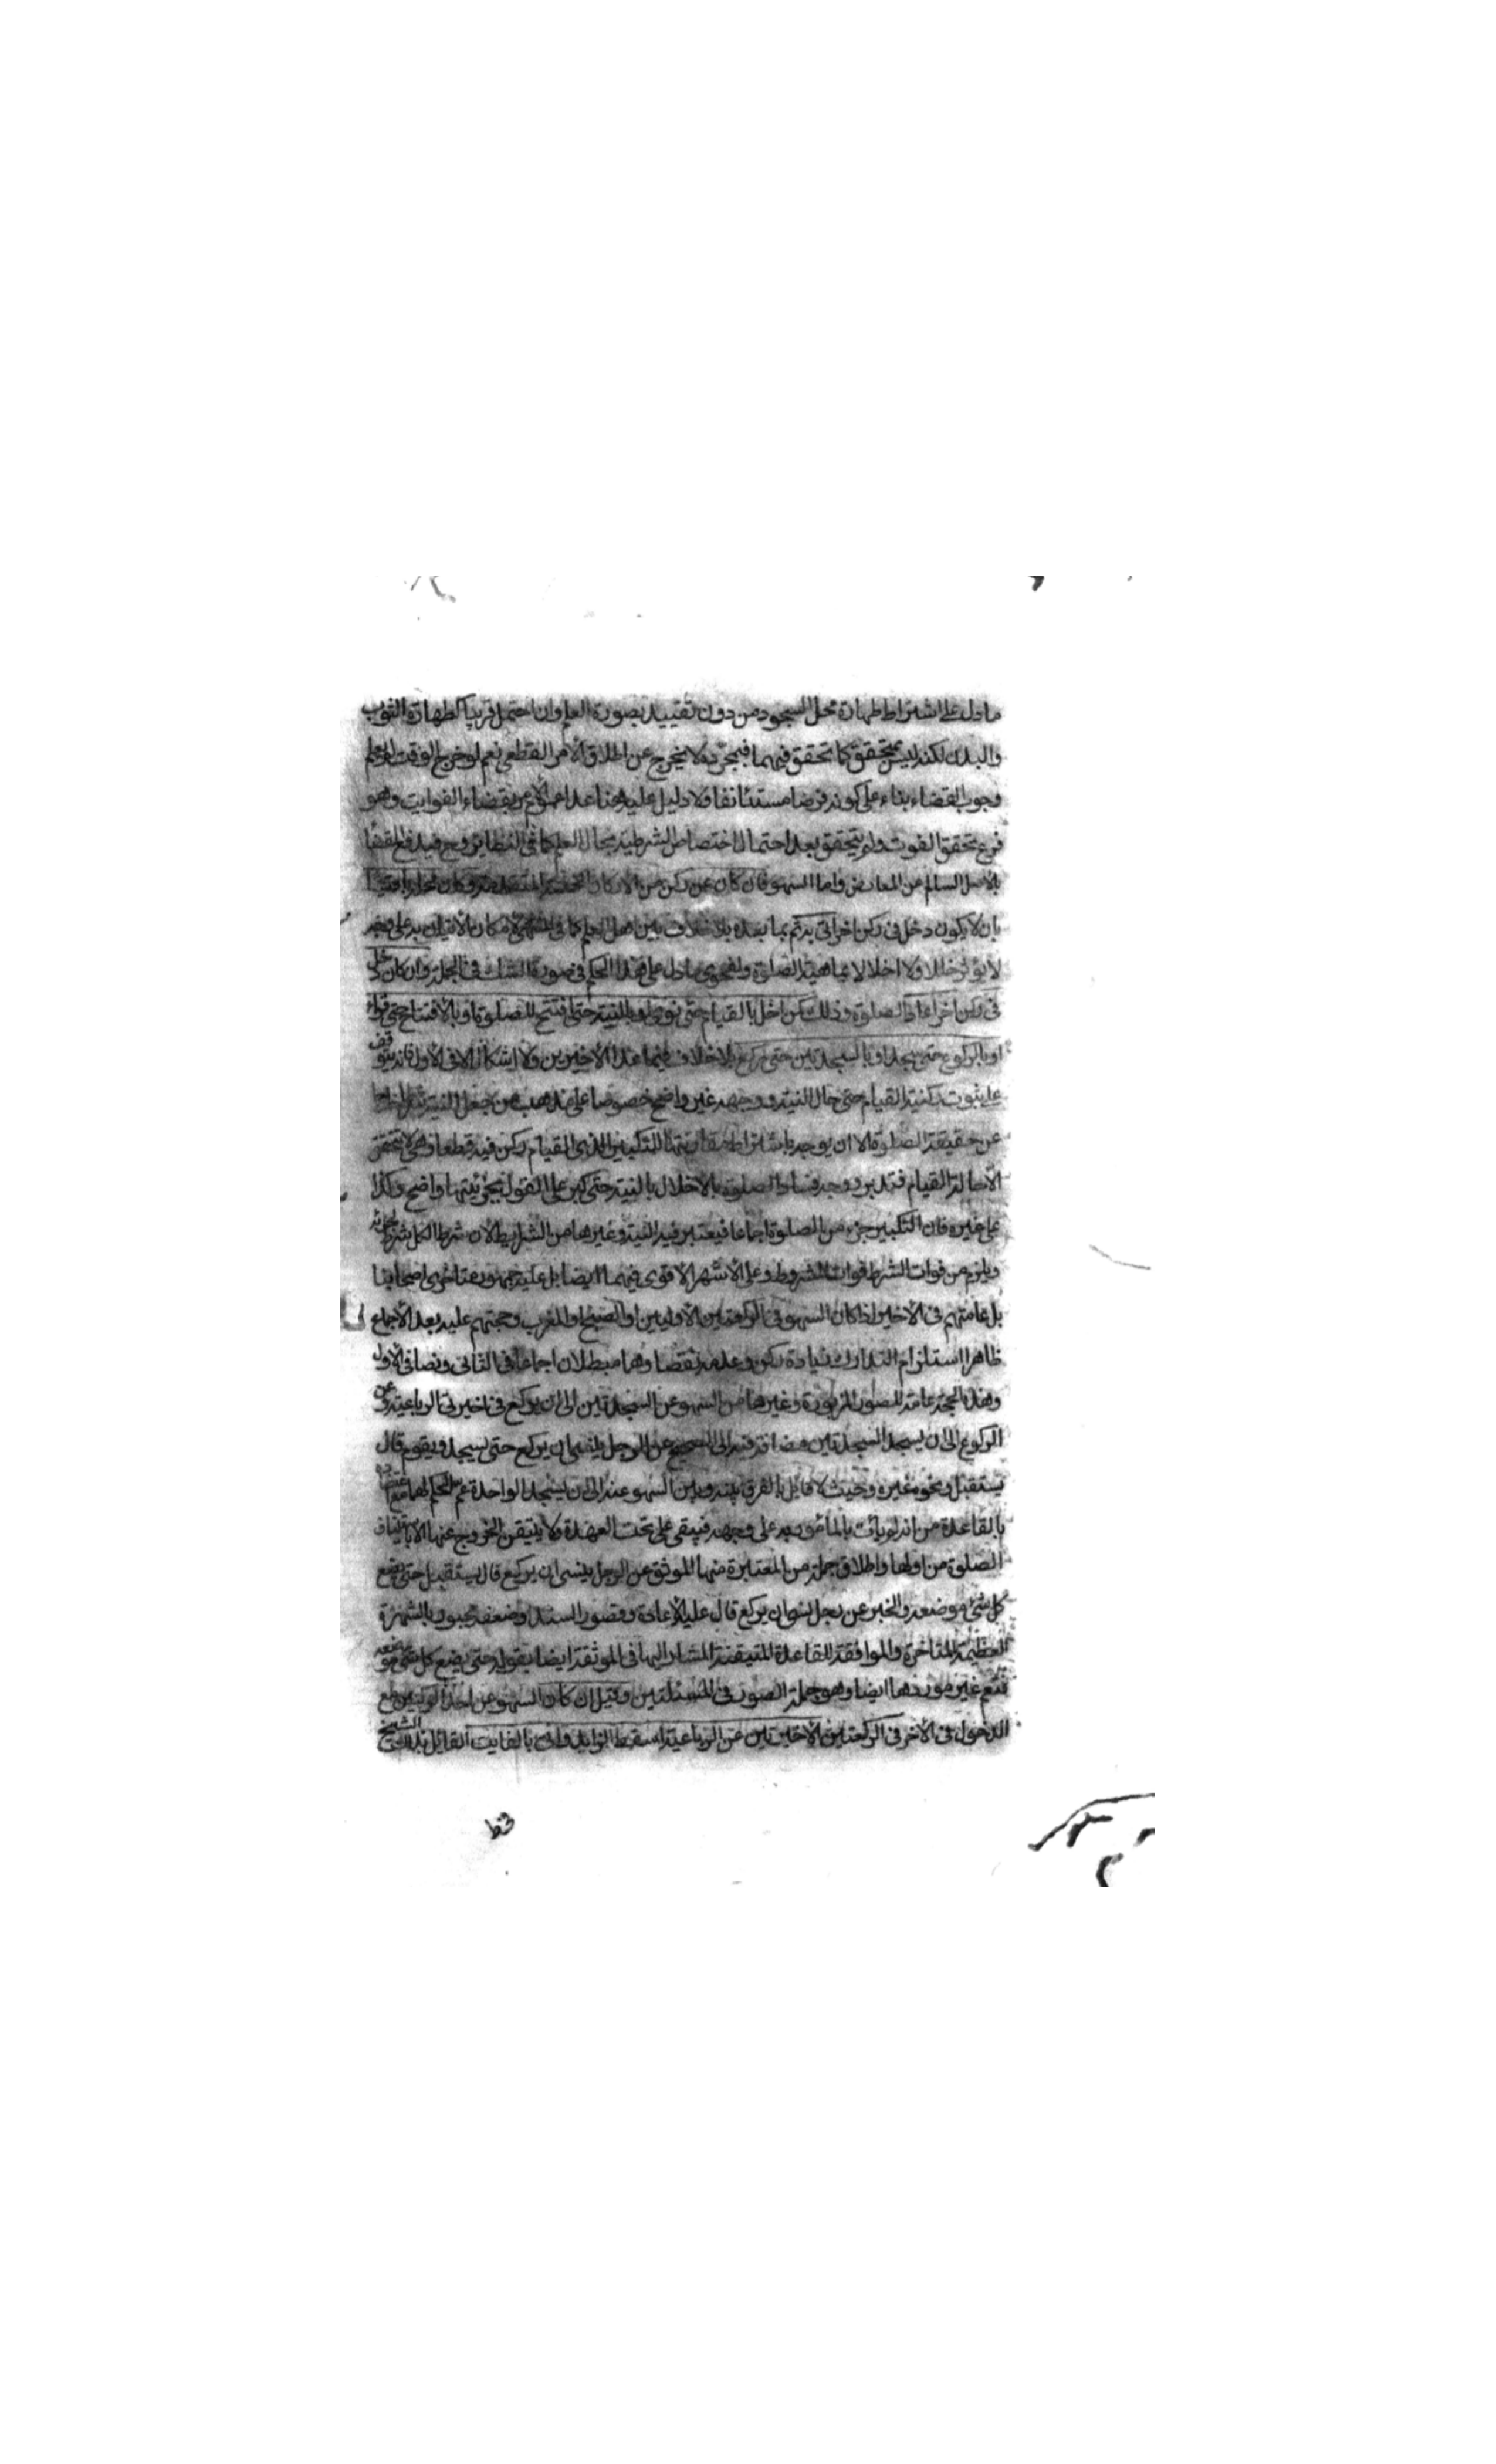 ما دل على اشتراط طهارة محل السجود من دون تقييد بصورة العلم وان احتمل قريبا كطهارة الثوب
والبدن لكنه ليس بمتحقق كما تحقق فيهما فبمجرده لا نخرج عن اطلاق الأمر القطعي نعم لو خرج الوقت لم يعلم
وجوب القضاء بناء على كونه فرضا مستئانفا ولا دليل عليه هنا عدا عموم الأمر بقضاء الفوايت وهو
فرع تحقق الفوت ولم يتحقق بعد احتمال اختصاص الشرطية بحال العلم كما في النظاير وح فيدفع القضا
بالاصل السالم عن المعارض واما السهو فان كان عن ركن من الاركان الخمسة المتقدمة وكان محله باقيا
بان لا يكون دخل في ركن اخر اتى به ثم بما بعده بلا خلاف بين اهل العلم كما في المنتهى لامكان الأتيان به على وجه
لا يؤثر خللا ولا اخلالا بماهية الصلوة ولفحوى ما دل على هذا الحكم في صورة الشك في الجملة وان كان دخل
في ركن اخر اعاد الصلوة وذلك كمن اخل بالقيام حتى نوى او بالنية حتى افتتح للصلوة او بالافتتاح حتى قراء
او بالركوع حتى سجد او بالسجدتين حتى ركع بلا خلاف فيما عدا الأخيرين ولا اشكال الا في الأول فانه يتوقف
على ثبوت ركنية القيام حتى حال النية ووجهه غير واضح خصوصا على مذهب من جعل النية شرطا خارجا
عن حقيقة الصلوة الا ان يوجه باشتراط مقارنتها للتكبير الذي القيام ركن فيه قطعا وهي لا تتحقق
الا حالة القيام فتدبر ووجه فساد الصلوة بالاخلال بالنية حتى كبر على القول بجزئيتها واضح وكذا
على غيره فان التكبير جزء من الصلوة اجماعا فيعتبر فيه النية وغيرها من الشرايط لأن شرط الكل شرط لجزئه
ويلزم من فوات الشرط فوات المشروط وعلى الأشهر الاقوى فيهما ايضا بل عليه جمهور متاخري اصحابنا
بل عامتهم في الأخير اذا كان السهو في الركعتين الأوليين او الصبح او المغرب وحجتهم عليه بعد الأجماع
ظاهرا استلزام التدارك زيادة ركن وعدمه نقصا وهما مبطلان اجماعا في الثاني ونصا في الأول
وهذه الحجة عامة للصور المزبورة وغيرها من السهو عن السجدتين الى ان يركع في اخيرتي الرباعية وعن
الركوع الى ان يسجد السجدتين مضافة فيه الى الصحيح عن الرجل ينسى ان يركع حتى يسجد ويقوم قال
يستقبل ونحوه غيره وحيث لا قائل بالفرق بينه وبين السهو عنه الى ان يسجد الواحدة عم الحكم لهما مع اعتضاده
بالقاعدة من انه لم يأت بالمأمور به على وجهه فيبقى على تحت العهدة ولا يتيقن الخروج عنها الا باستيناف
الصلوة من اولها واطلاق جملة من المعتبرة منها الموثق عن الرجل ينسى ان يركع قال يستقبل حتى يضع
كل شيء موضعه والخبر عن رجل نسى ان يركع قال عليه الاعادة وقصور السند او ضعفه مجبور بالشهرة
العظيمة المتاخرة والموافقة للقاعدة المتيقنة المشار اليها في الموثقة ايضا بقوله حتى يضع كل شيء موضعه
فتعم غير موردها ايضا وهو جملة الصور في المسئلتين وقيل ان كان السهو عن احد الركنين مع
الدخول في الأخر في الركعتين الأخيرتين عن الرباعية اسقط الزايد واتى بالفايت القايل بذلك الشيخ